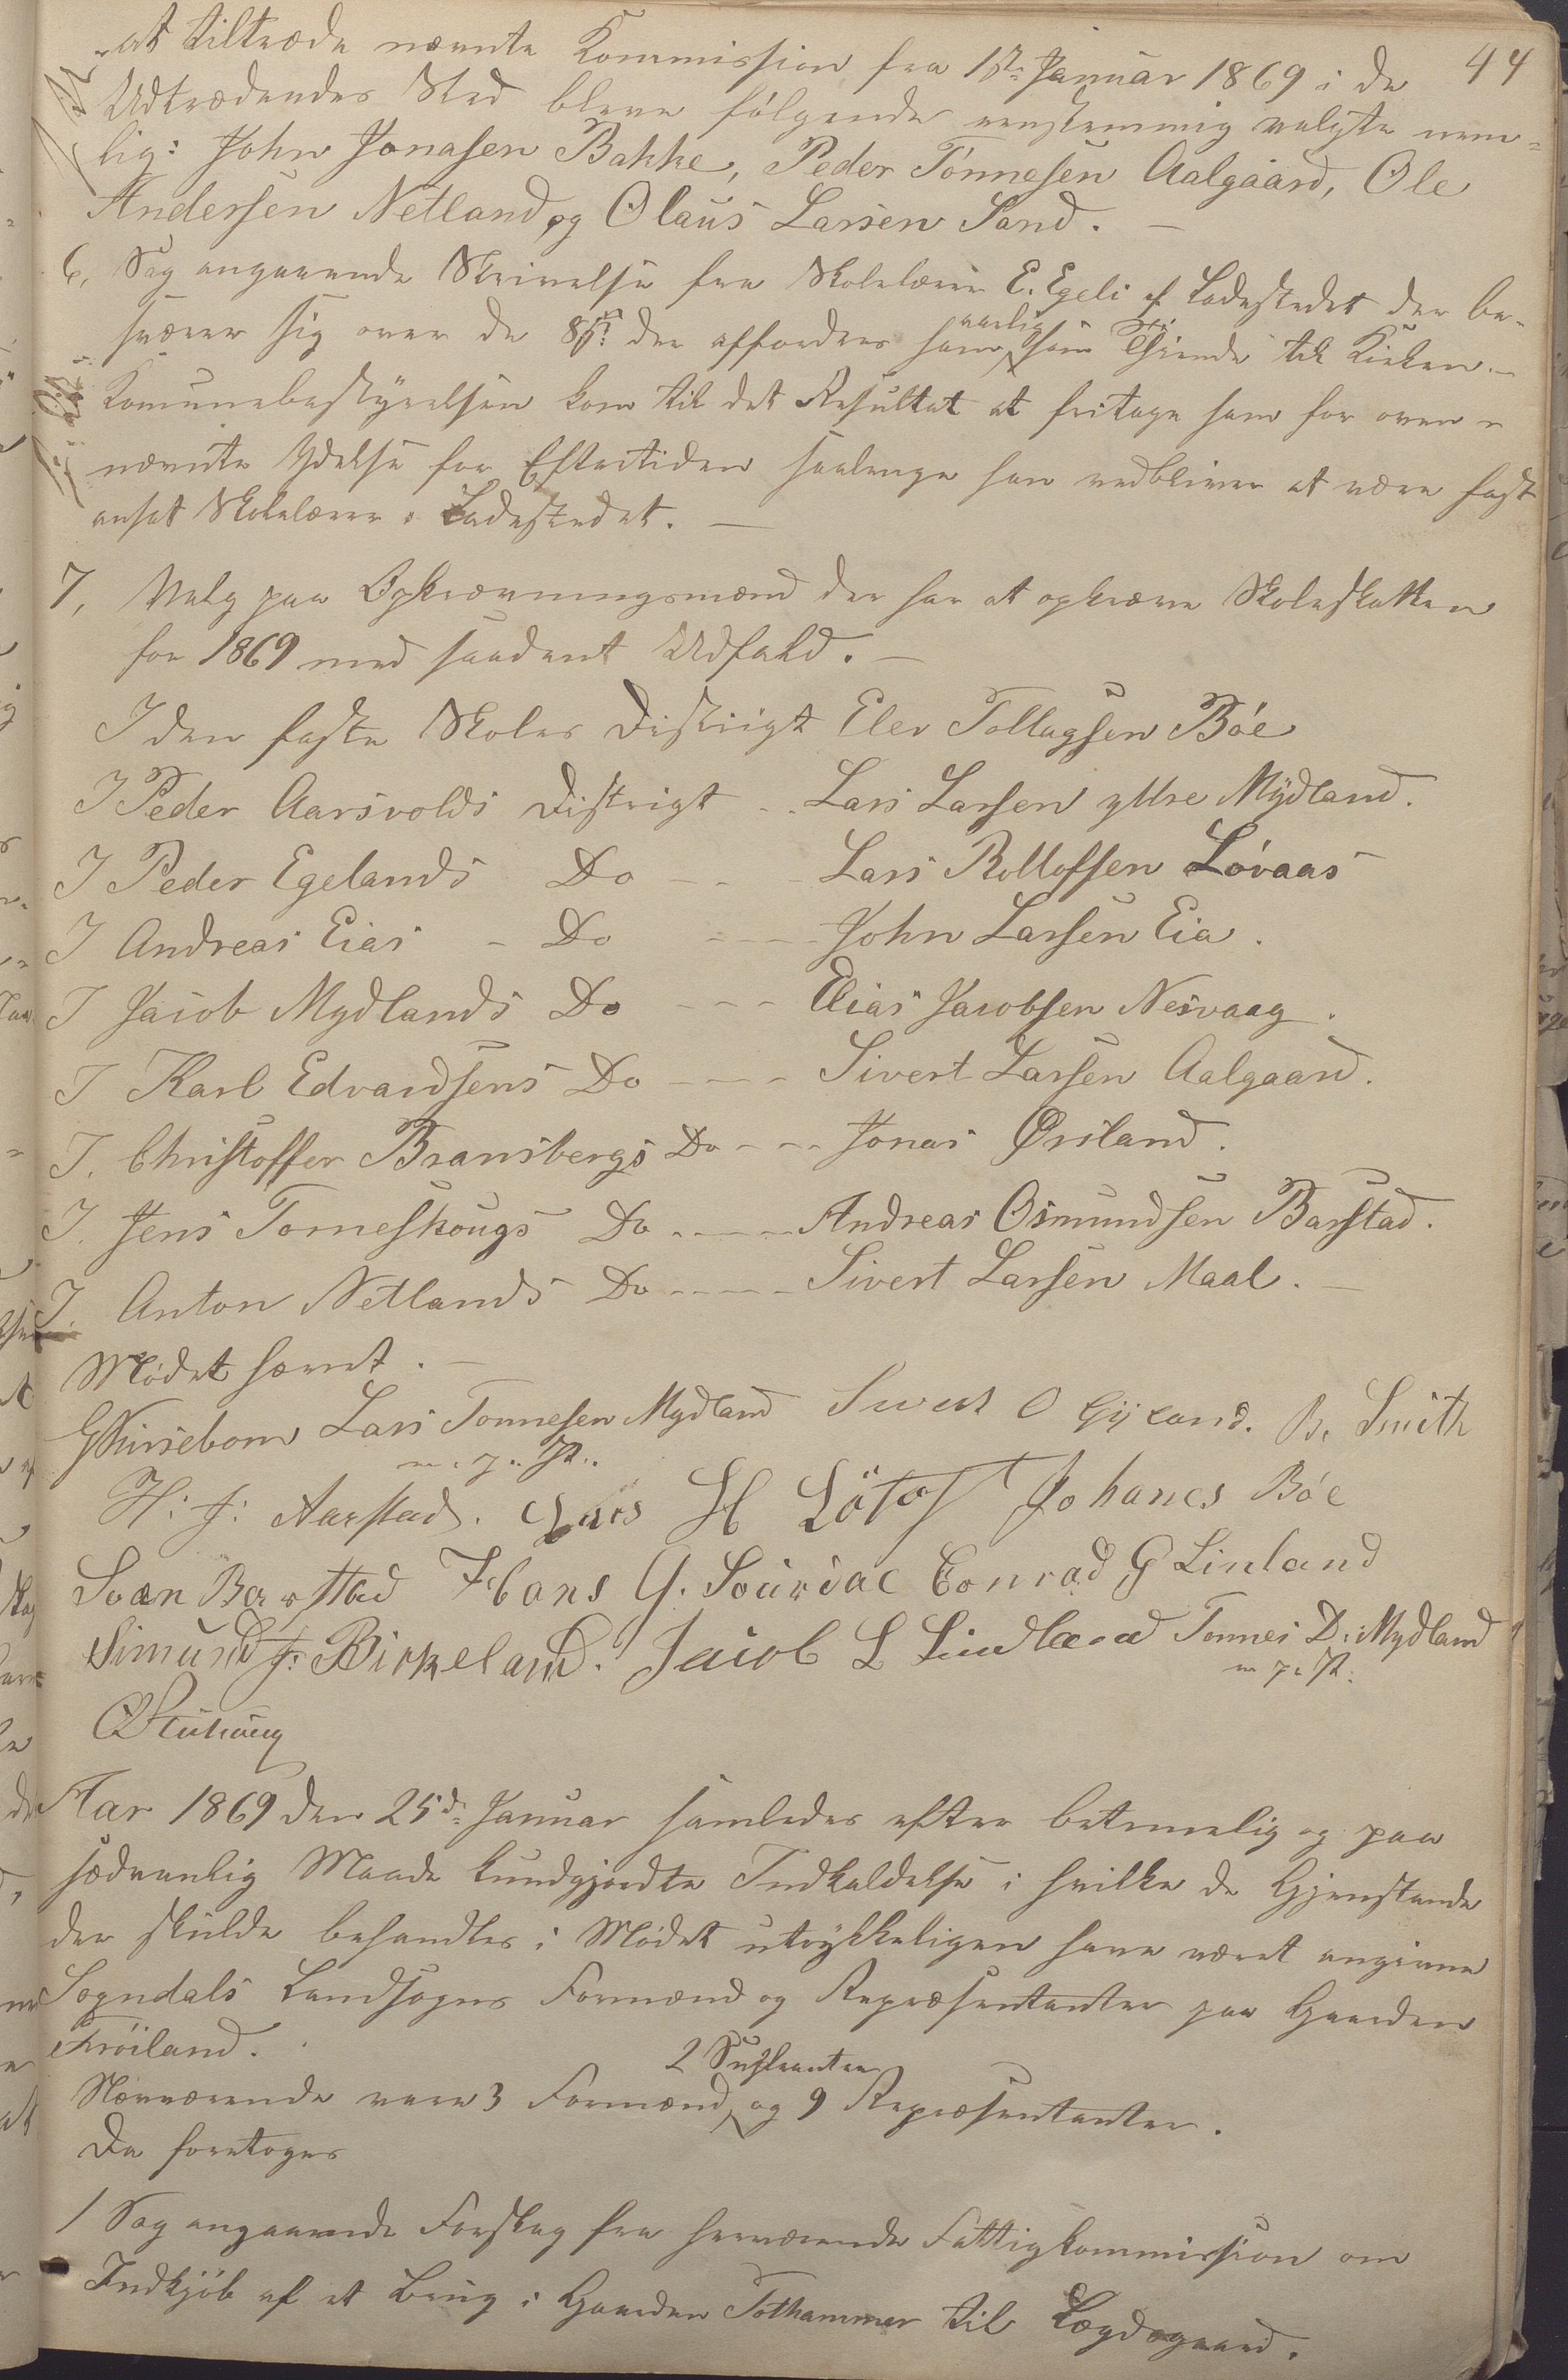 44
at tiltræde nævnte Kommission fra 1ste Januar 1869 i de
Udtrædendes Sted bleve følgende eenstemmig valgte nem-
lig: John Jonasen Bakke, Peder Tönnesen Aalgaard, Ole
Andersen Netland og Olaus Larsen Sand. —
6, Sag angaaende Skrivelse fra Skolelærer E. Egeli af Ladestedet der be-
sværer sig over de 8 der affordres ham aarlig som Tiende til Kirken. —
Komunebestyrelsen kom til det Resultat at fritage ham for oven-
nævnte Ydelse for Eftertiden saalenge han vedbliver at være fast
ansat Skolelærer i Ladestedet. —
7, Valg paa Opkrævningsmænd der har at opkræve Skoleskatten
for 1869 med saadant Udfald. —
I den faste Skoles Distrigt Elev Tollagsen Böe
I Peder Aarsvolds Distrigt - Lars Larsen yttre Mydland.
I Peder Egelands Do - - Lars Rollofsen Lövaas
I Andreas Eias - Do - - - John Larsen Eia.
I Jacob Mydlands Do - - - Elias Jacobsen Nesvaag.
I Karl Edvardsens Do - - - Sivert Larsen Aalgaard.
I. Christoffer Bransbergs Do - - - Jonas Ørsland.
I. Jens Tomeskougs Do - - - - Andreas Osmundsen Barstad.
I. Anton Netlands Do - - - - Sivert Larsen Maal. —
Mödet hævet. —
G Kirsebom Lars Tonnesen Mydland Sivert O Gyland. B. Smith
m. p. P.
H: J: Aarstad. Lars H Lötoft Johanes Böe
Svæn Barstad Hans G. Sourdal Conrad G Linland
Simund J: Birkeland. Jacob L Lindland Tonnes D. Mydland
m. p. P.
Aar 1869 den 25de Januar samledes efter betimelig og paa
sædvanlig Maade kundgjordte Indkaldelse i hvilke de Gjenstande
der skulde behandles i Mödet utrykkeligen have været angivne
Sogndals Landsogns Formænd og Repræsentanter paa Gaarden
Fröiland.
Nærværende vare 3 Formænd, 2 Suplranter og 9 Repræsentanter.
Da foretoges
1 Sag angaaende Forslag fra herværende Fattigkommission om
Indkjöb af et Brug i Gaarden Tothammer til Lægdsgaard.